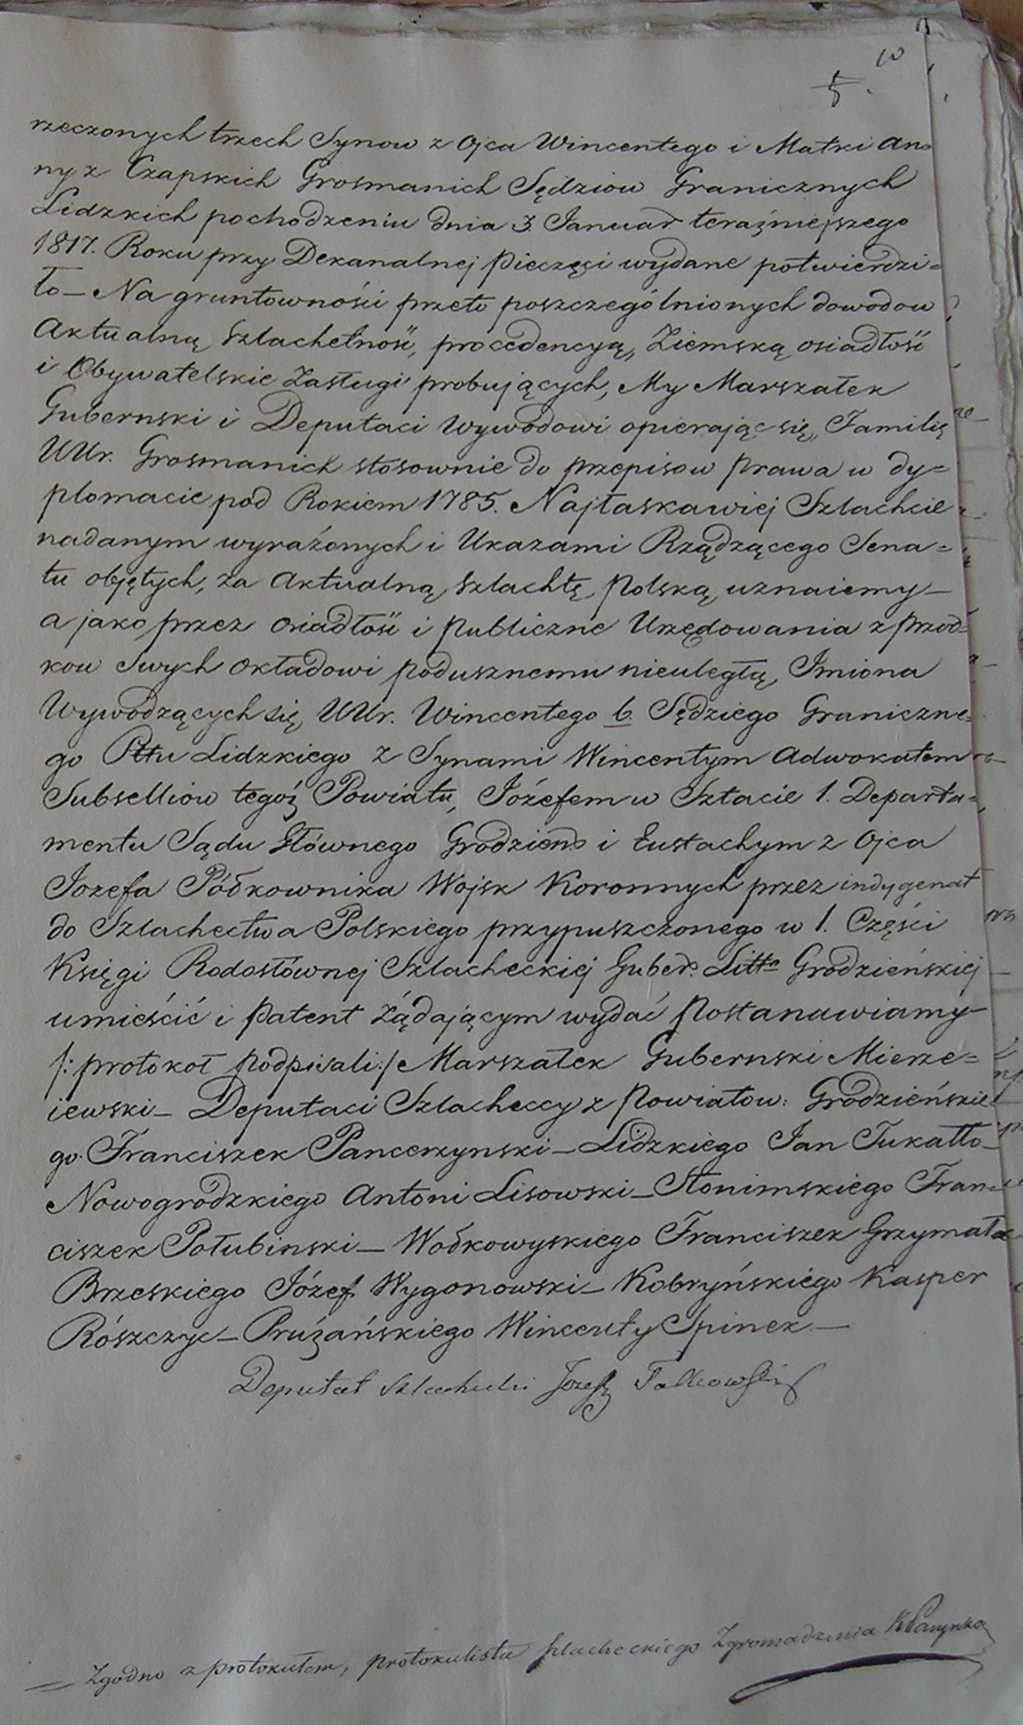 10
5.
rzeczonych trzech Synow z Ojca Wincentego i Matki An=
ny z Czapskich Grosmanich Sędziow Granicznych
Lidzkich pochodzeniu dnia 3. Januar teraźniejszego
1817. Roku przy Dekanalnej pieczęci wydane potwierdzi=
ło – Na gruntowności przeto poszczególnionych dowodow
Aktualną Szlachetność, procedencyą, Ziemską osiadłość
i Obywatelskie Zasługi probujących, My Marszałek
Gubernski i Deputaci Wywodowi opierając się, Familię
UUr. Grosmanich stosownie do przepisow prawa w dy=
plomacie pod Rokiem 1785. Najłaskawiej Szlachcie
nadanym wyrażonych i Ukazami Rządzącego Sena=
tu objętych, za Aktualną Szlachtę Polską uznaiemy –
a jako przez osiadłość i Publiczne Urzędowania z przod=
kow Swych okładowi podusznemu nieuległą, Imiona
Wywodzących się UUr. Wincentego b. Sędziego Graniczne=
go Pttu Lidzkiego z Synami Wincentym Adwokatem
Subselliow tegoż Powiatu, Józefem w Sztacie 1. Departa=
mentu Sądu Głównego Grodzieno i Eustachym z Ojca
Jozefa Półkownika Wojsk Koronnych przez indygenat
do Szlachectwa Polskiego przypuszczonego w 1. Części
Księgi Rodosłównej Szlacheckiej Guber. Litto Grodzieńskiej
umieścić i Patent Żądającym wydać Postanawiamy –
/: protokoł podpisali :/ Marszałek Gubernski Mierze=
iewski – Deputaci Szlacheccy z Powiatow: Grodzieńskie
go Franciszek Pancerzynski – Lidzkiego Jan Tukałło –
Nowogrodzkiego Antoni Lisowski – Słonimskiego Fran=
ciszek Połubinski – Wołkowyskiego Franciszek Grzymała
Brzeskiego Józef Wygonowski – Kobryńskiego Kasper
Rószczyc – Prużańskiego Wincenty Spinek –
Deputat Szlachecki Jozef Falkowski
= Zgodno z protokułem, protokulista Szlacheckiego Zgromadzenia